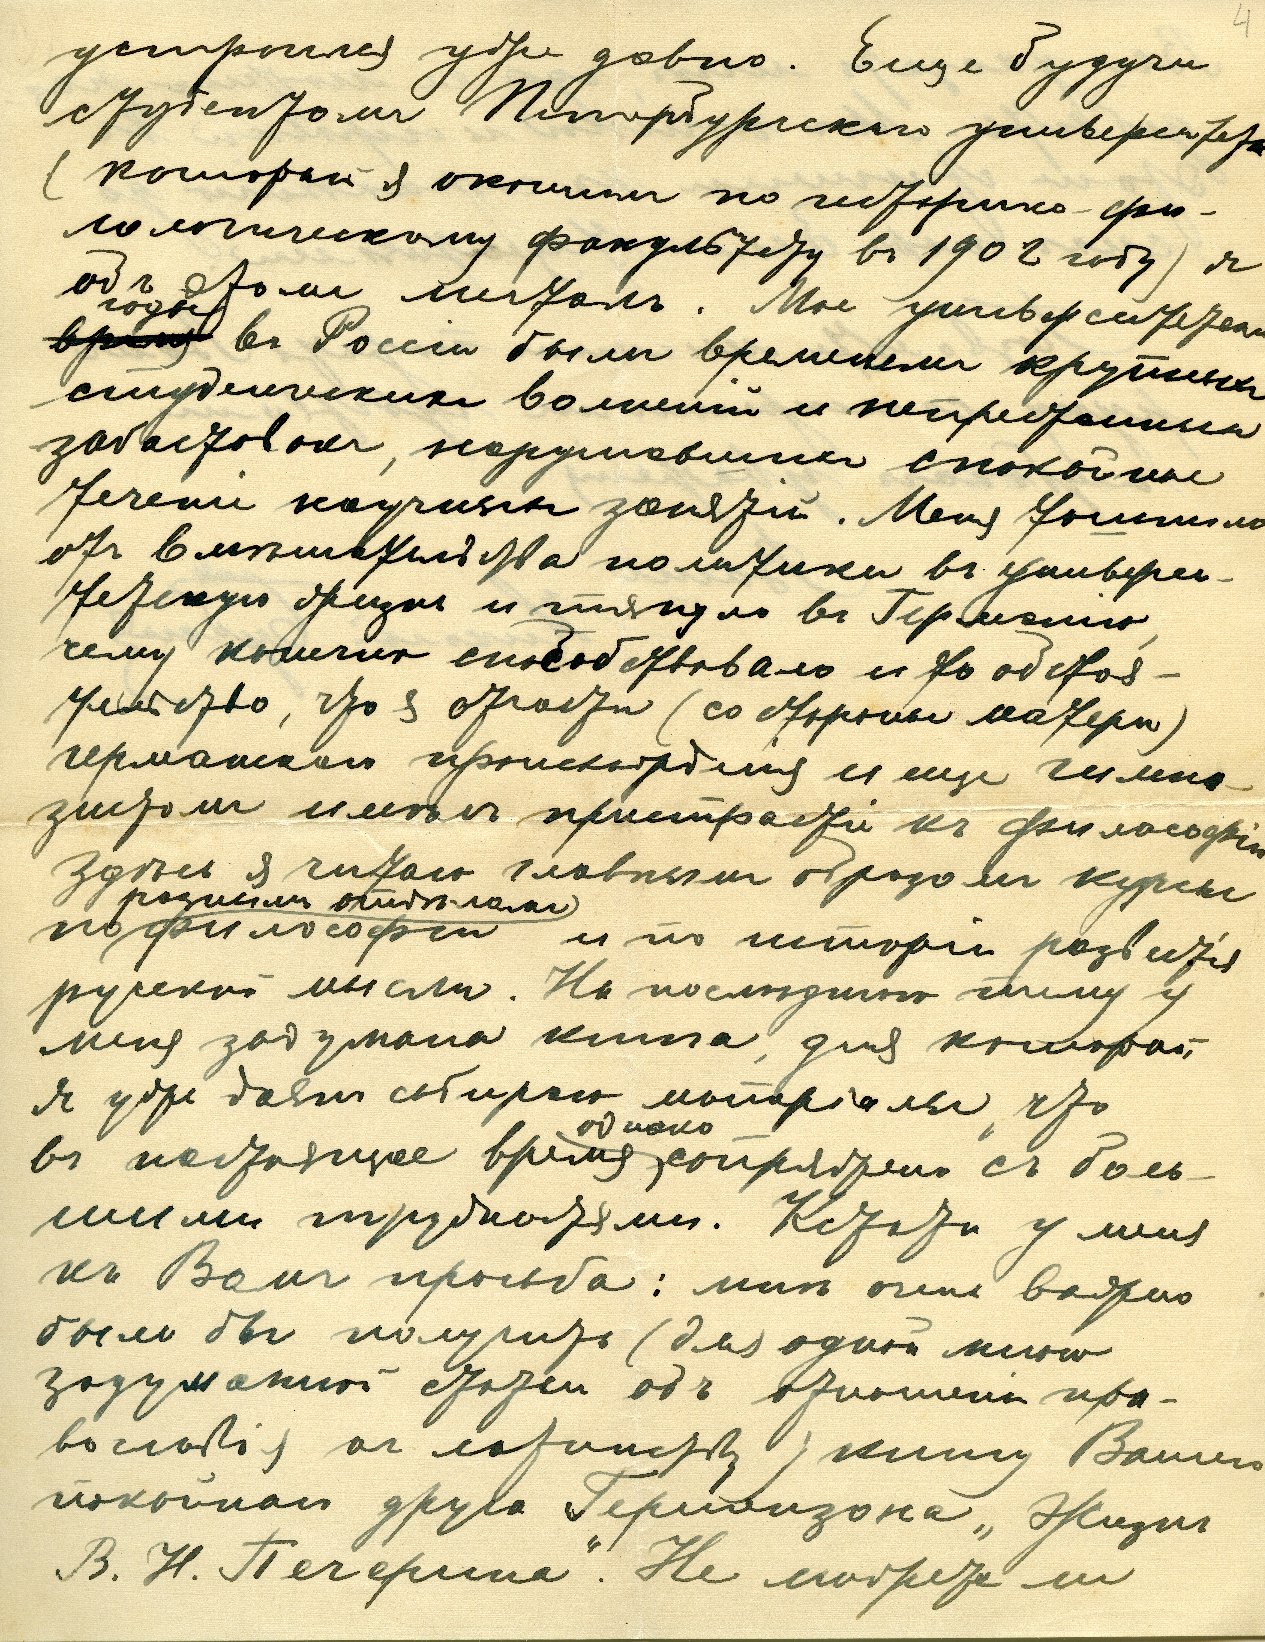 4
устроился уже давно. Еще будучи
студентом Петербургскаго университета
(который я окончил по историко-фи-
лологическому факультету въ 1902 году) я
объ этом мечталъ. Мои университетские
годы
время въ Россіи были временем крупных
студенческих волненій и непрестанных
забастовок, нарушавших спокойное
теченіе научных занятій. Меня тошнило
отъ вмѣшательства политики въ универси-
тетскую жизнь и тянуло въ Германію,
чему конечно способствовало и то обстоя-
тельство, что я отчасти (со стороны матери)
германскаго происхожденія и еще гимна-
зистом имѣлъ пристрастіе къ философіи
Здѣсь я читаю главным образом курсы
разным отдѣлам
по философіи и по исторіи развитія
русской мысли. На послѣднюю тему у
меня задумана книга, для которой
я уже давно собираю матеріалы, что
однако
въ настоящее время, сопряжено съ боль-
шими трудностями. Кстати у меня
къ Вам просьба: мнѣ очень важно
было бы получить (для одной мною
задуманной статьи объ отношеніи пра-
вославія къ латинству) книгу Вашего
покойнаго друга Гершензона „Жизнь
В. Н. Печерина". Не можете ли